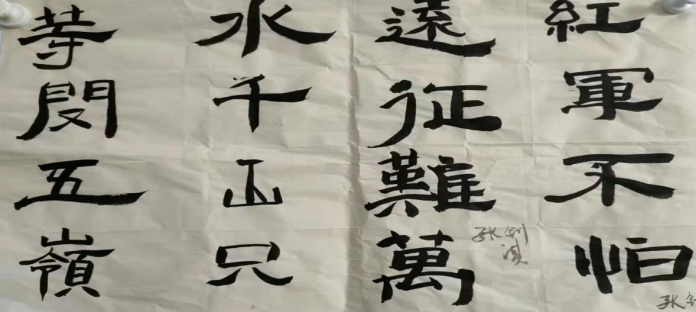 紅軍不怕
遠征難萬
水千山只
等閑五嶺